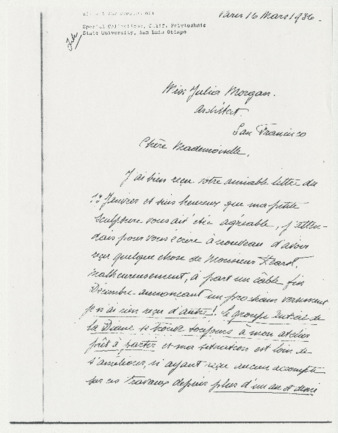 Paris 16 Mars 1936
Special Collections, Calif. Polytechnic
State University, San Luis Obispo
Miss Julia Morgan.
Architect
San Francisco
Chère Mademoiselle,
J'ai bien reçu votre aimable lettre du
Janvier et suis heureux que ma petite
sculpture vous ait été agréable, j'atten-
dais pour vous écrire à nouveau d'avoir
reçu quelque chose de Monsieur Hearst
Malheureusement, à part un câble fin
Décembre annonçant un prochain versement
je n'ai rien reçu d'autre! Le groupe
la Diane se trouve toujours à mon atelier
prêt à partir et ma situation est loin de
s'améliorer, n'ayant reçu aucun acompte
sur ces travaux depuis plus d'un an et demi